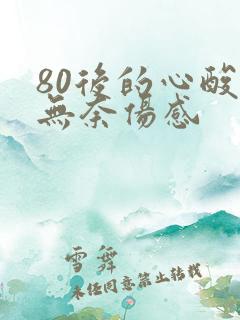 80後的心酸
無奈傷感
雪舞
未经同意禁止转载